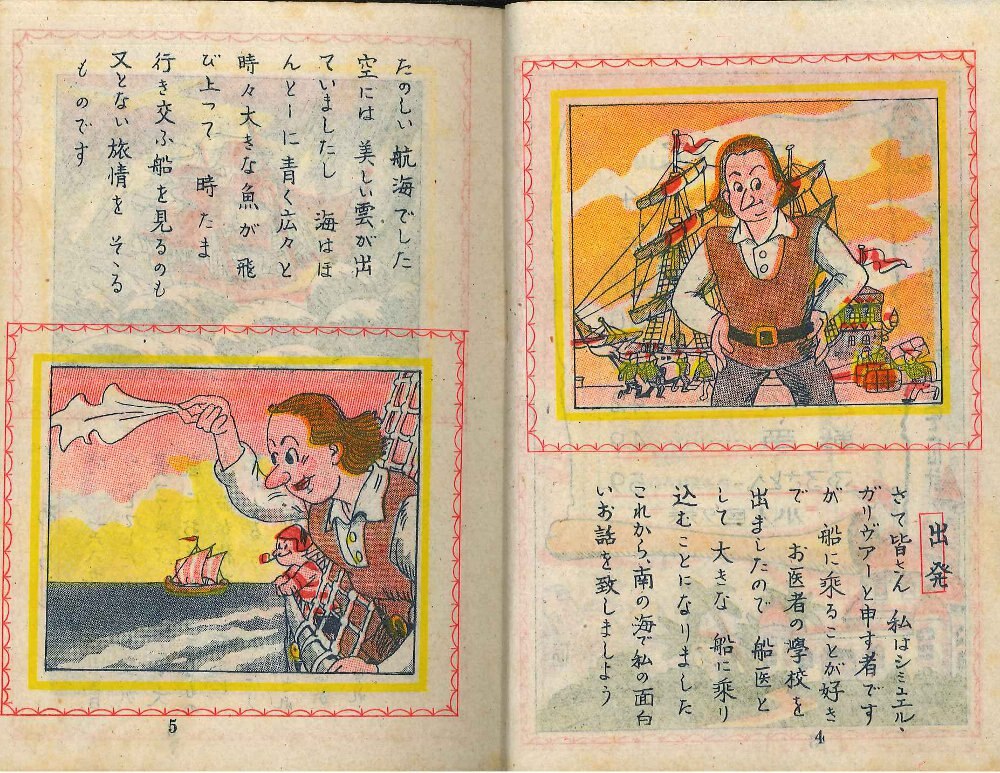 出発
さて皆さん 私はシミュエル、
ガリヴアーと申す者です
が 船に乗ることが好き
で お医者の學校を
出ましたので 船医と
して 大きな 船に乗り
込むことになりました
これから、南の海で私の面白
いお話を致しましよう
4
たのしい 航海でした
空には 美しい雲が出
ていましたし 海はほ
んとーに青く広々と
時々大きな魚が 飛
び上って 時たま
行き交ふ船を見るのも
又とない旅情を そゝる
ものです
5